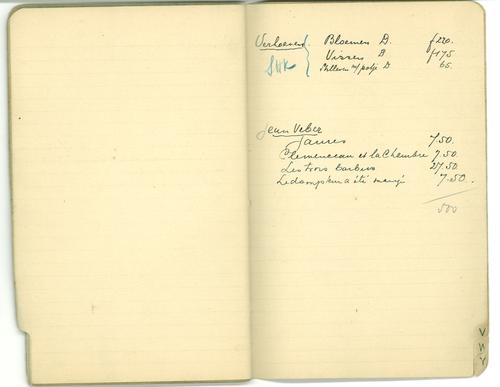 Verhoeven. Bloemen D. f 220.
SVK Vissen D f 175
Stilleven m/potje D 65.
Jean Veber
Jaures 7.50.
Clemenceau et la Chambre 7.50.
Les trois barbiers 27.50.
Le dompteur a été mangé 7.50.
500
V
W
Y